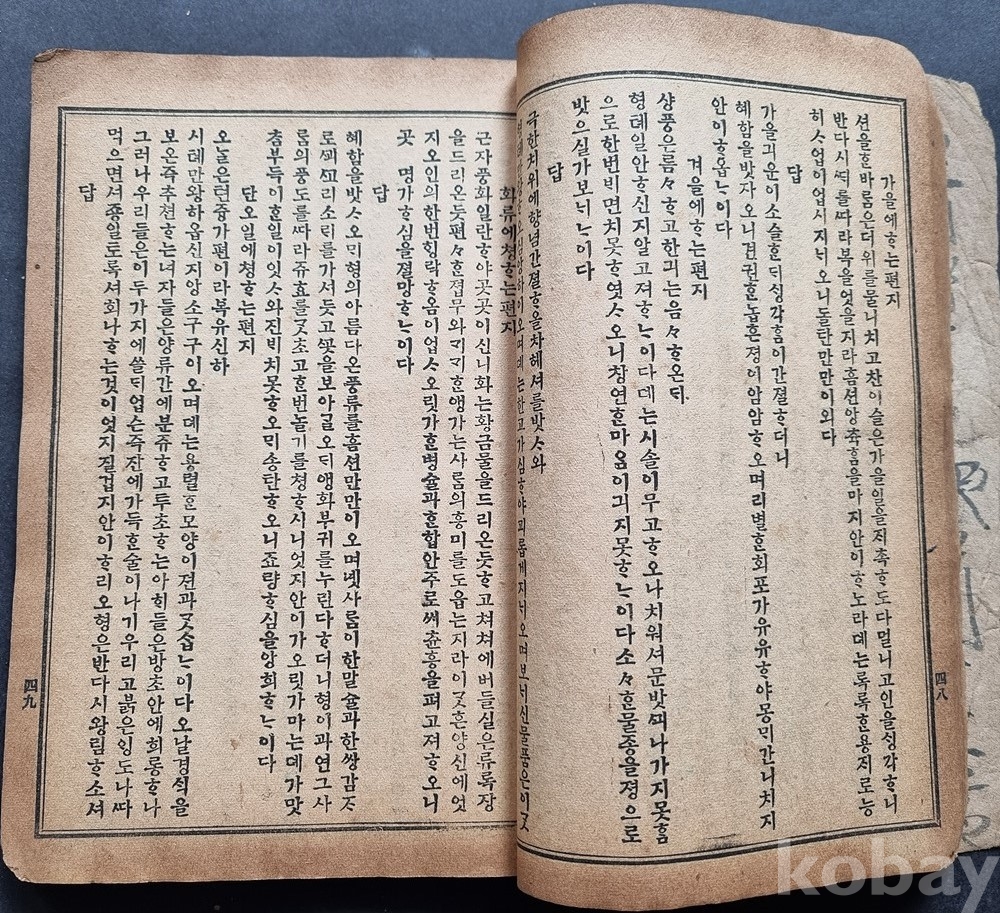 가을에ᄒᆞ는편지
션을ᄒᆞᆫ바ᄅᆞᆷ은더위를물니치고찬이슬은가을일을ᄌᆡ촉ᄒᆞ도다멀니고인을ᄉᆡᆼ각ᄒᆞ니
반다시ᄯᅢ를ᄯᅡ라복을엇을지라흠션앙츅ᄒᆞᆷ을마지안이ᄒᆞ노라뎨는록록ᄒᆞᆫ용ᄌᆡ로능
히ᄉᆞ업이업시지ᄂᆡ오니돌탄만만이외다
답
가을긔운이소슬ᄒᆞᆫᄃᆡᄉᆡᆼ각ᄒᆞᆷ이간졀ᄒᆞ더니
혜함을밧자오니견권ᄒᆞᆫ놉흔졍이암암ᄒᆞ오며리별ᄒᆞᆫ회포가유유ᄒᆞ야몽ᄆᆡ간니치지
안이ᄒᆞ옵ᄂᆞ이다
겨을에ᄒᆞ는편지
샹풍은름々ᄒᆞ고한긔는음々ᄒᆞ온ᄃᆡ
형톄일안ᄒᆞ신지알고져ᄒᆞᄂᆞ이다뎨는시솔이무고ᄒᆞ오나치워셔문밧ᄭᅴ나가지못ᄒᆞᆷ
으로한번비면치못ᄒᆞ엿ᄉᆞ오니창연ᄒᆞᆫ마ᄋᆞᆷ이긔지못ᄒᆞᄂᆞ이다소々ᄒᆞᆫ물죵을졍으로
밧으실가보ᄂᆡᄂᆞ이다
답
극한치위에향념간졀ᄒᆞ을차혜셔를밧ᄉᆞ와
오며뎨는한고가심ᄒᆞ야괴롭게지ᄂᆡ오며보ᄂᆡ신물품은이ᄀᆞᆺ
화류에쳥ᄒᆞ는편지
근자풍화일란ᄒᆞ야곳곳이신니화는황금물을드리온듯ᄒᆞ고쳐쳐에버들실은류록장
을드리온듯편々ᄒᆞᆫ졉무와ᄭᅬᄭᅬᄒᆞᆫ앵가는사ᄅᆞᆷ의흥미를도읍는지라이ᄀᆞᆺ흔양신에엇
지오인의한번ᄒᆡᆼ락ᄒᆞᆷ이업ᄉᆞ오릿가ᄒᆞᆫ병슐과ᄒᆞᆫ합안주로써츈흥을펴고져ᄒᆞ오니
곳 명가ᄒᆞ심을졀망ᄒᆞᄂᆞ이다
답
혜함을밧ᄉᆞ오ᄆᆡ형의아름다온풍류를흠션만만이오며녯사ᄅᆞᆷ이한말슐과한쌍감ᄌᆞ
로ᄭᅬᄭᅩ리소ᄅᆡ를가셔듯고ᄭᅩᆺ을보아글오ᄃᆡ앵화부귀를누린다ᄒᆞ더니형이과연그사
ᄅᆞᆷ의풍도를ᄯᅡ라쥬효를ᄀᆞᆺ초고ᄒᆞᆫ번놀기를쳥ᄒᆞ시니엇지안이가오릿가마는뎨가맛
ᄎᆞᆷ부득이ᄒᆞᆫ일이잇ᄉᆞ와진비치못ᄒᆞ오ᄆᆡ송탄ᄒᆞ오니죠량ᄒᆞ심을앙희ᄒᆞᄂᆞ이다
단오일에쳥ᄒᆞ는편지
오ᄂᆞᆯ은련즁가편이라복유신하
시톄만왕하옵신지앙소구구이오며뎨는용렬ᄒᆞᆫ모양이젼과ᄀᆞᆺ슴ᄂᆞ이다오날경ᄉᆡᆨ을
보온즉추쳔ᄒᆞ는녀자들은양류간에분쥬ᄒᆞ고투초ᄒᆞ는아ᄒᆡ들은방초안에희롱ᄒᆞ나
그러나우리들은이두가지에쓸ᄃᆡ업슨즉잔에가득ᄒᆞᆫ술이나기우리고붉은ᄋᆡᆼ도나ᄯᅡ
먹으면셔죵일토록셔회나ᄒᆞ는것이엇지질겁지안이ᄒᆞ리오형은반다시왕림ᄒᆞ소셔
답
四八
四九
kobay